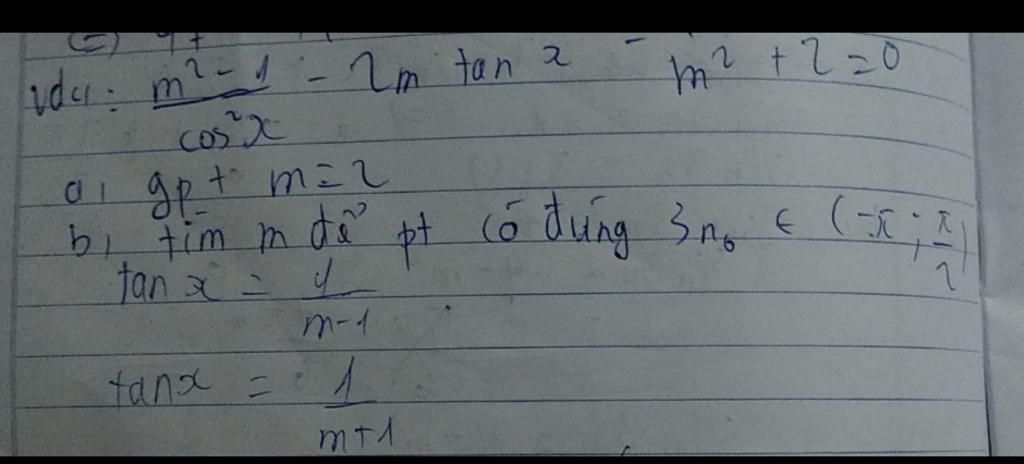 vd4: (m² - 1)/cos²x - 2m tan x - m² + 2 = 0
a, gpt m = 2
b, tìm m để pt có đúng 3 n₀ ∈ (-π; π/2)
tan x = 1/(m-1)
tan x = 1/(m+1)